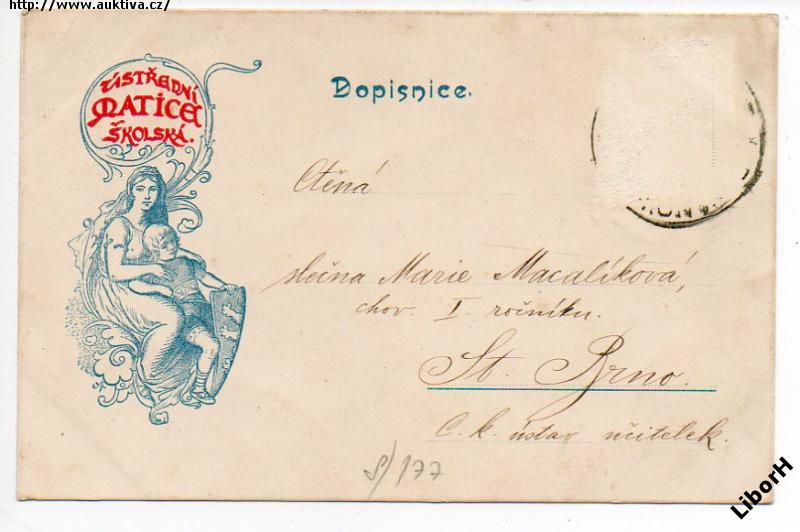 http://www.auktiva.cz/
ÚSTŘEDNÍ
MATICE
ŠKOLSKÁ.
Dopisnice.
Ctěná
slečna Marie Macalíková,
chov. I. ročníku.
St. Brno.
C. k. ústav učitelek.
S/177
LiborH